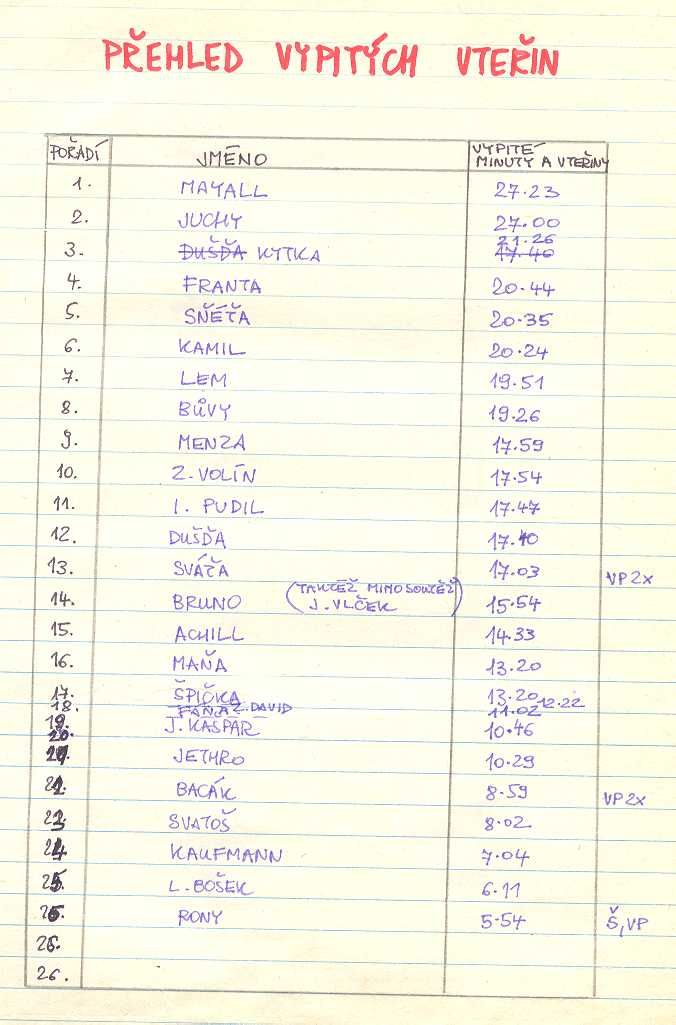 PŘEHLED VYPITÝCH VTEŘIN
POŘADÍ JMÉNO VYPITÉ MINUTY A VTEŘINY
1. MAYALL 27.23
2. JUCHY 27.00
3. DUŠĎA KYTKA 21.26 17.40
4. FRANTA 20.44
5. SŇÉŤA 20.35
6. KAMIL 20.24
7. LEM 19.51
8. BŮVY 19.26
9. MENZA 17.59
10. Z. VOLÍN 17.54
11. I. PUDIL 17.47
12. DUŠĎA 17.40
13. SVÁŤA 17.03 VP 2x
14. BRUNO (TAKTÉŽ MIMO SOUTĚŽ J. VLČEK) 15.54
15. ACHILL 14.33
16. MAŇA 13.20
17. ŠPIČKA 13.20
18. FAŇA Z. DAVID 11.02 12.22
19. J. KASPAR 10.46
20.
JETHRO 10.29
22. BACÁK 8.59 VP 2x
23. SVATOŠ 8.02
24. KAUFMANN 7.04
25. L. BOŠEK 6.11
26. RONY 5.54 Š, VP
26.
26.